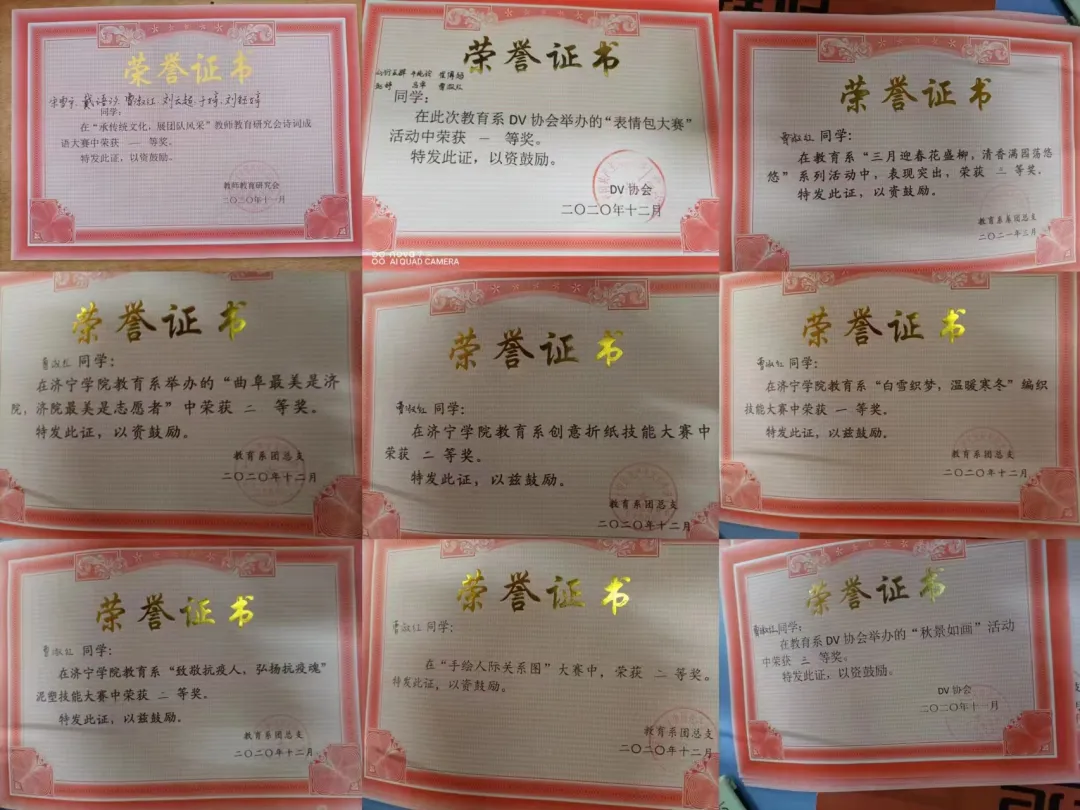 荣誉证书
戴语汐、曹淑红、刘云超、于琦、刘钰琦
同学：
在“承传统文化，展团队风采”教师教育研究会诗词成
语大赛中荣获 一 等奖。
特发此证，以资鼓励。
教师教育研究会
二〇二〇年十一月
荣誉证书
曹淑红
同学：
在此次教育系DV协会举办的“表情包大赛”
活动中荣获 一 等奖。
特发此证，以资鼓励。
DV协会
二〇二〇年十二月
AI QUAD CAMERA
荣誉证书
曹淑红 同学：
在教育系“三月迎春花盛柳，清香满园荡悠
悠”系列活动中，表现突出，荣获 二 等奖。
特发此证，以资鼓励。
教育系团总支
二〇二一年三月
荣誉证书
曹淑红 同学：
在济宁学院教育系举办的“曲阜最美是济
院，济院最美是志愿者”中荣获 二 等奖。
特发此证，以资鼓励。
教育系团总支
二〇二〇年十二月
荣誉证书
曹淑红 同学：
在济宁学院教育系创意折纸技能大赛中
荣获 二 等奖。
特发此证，以兹鼓励。
教育系团总支
二〇二〇年十二月
荣誉证书
曹淑红 同学：
在济宁学院教育系“白雪织梦，温暖寒冬”编织
技能大赛中荣获 一 等奖。
特发此证，以兹鼓励。
教育系团总支
二〇二〇年十二月
荣誉证书
曹淑红 同学：
在济宁学院教育系“致敬抗疫人，弘扬抗疫魂”
泥塑技能大赛中荣获 二 等奖。
特发此证，以兹鼓励。
教育系团总支
二〇二〇年十二月
荣誉证书
曹淑红 同学：
在“手绘人际关系图”大赛中，荣获 二 等奖。
特发此证，以资鼓励。
教育系团总支
二〇二〇年十二月
荣誉证书
曹淑红 同学：
在教育系DV协会举办的“秋景如画”活动
中荣获 三 等奖。
特发此证，以资鼓励。
DV协会
二〇二〇年十一月